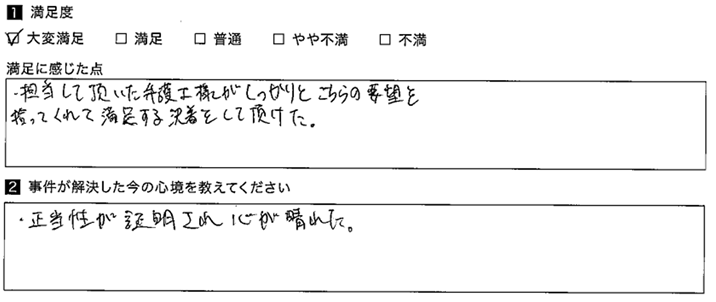 1 満足度
☑ 大変満足 □ 満足 □ 普通 □ やや不満 □ 不満
満足に感じた点
・担当して頂いた弁護士様がしっかりとこちらの要望を
拾ってくれて満足する決着をして頂けた。
2 事件が解決した今の心境を教えてください
・正当性が証明され心が晴れた。